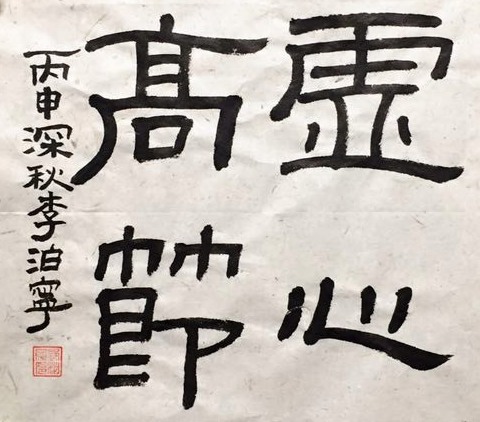 虛心
高節
丙申深秋李泊寧